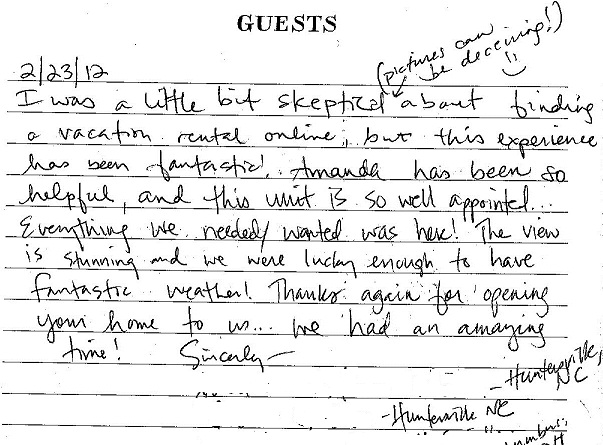 GUESTS
(pictures can
be deceiving!)
2/23/12
I was a little bit skeptical about finding
a vacation rental online, but this experience
has been fantastic! Amanda has been so
helpful, and this unit is so well appointed...
Everything we needed/wanted was here! The view
is stunning and we were lucky enough to have
fantastic weather! Thanks again for opening
your home to us... we had an amazing
time! Sincerely—
- Huntersville,
NC
- Huntersville NC